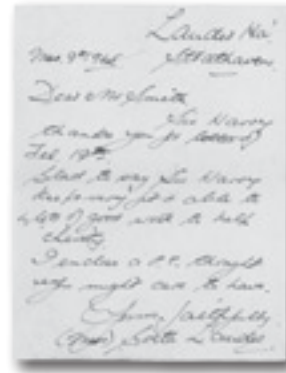 Lauder Ha'
Mar. 9th 1946 Strathaven
Dear Mr Smith
Sir Harry
thanks you for letter of
Feb 19th.
Glad to say Sir Harry
keeps very fit & able to
do lots of good work to help
charity.
I enclose a P.C. thought
you might care to have.
Yours faithfully
(Miss) Greta Lauder